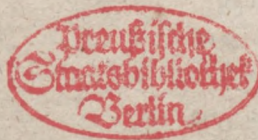 Preußische
Staatsbibliothek
Berlin